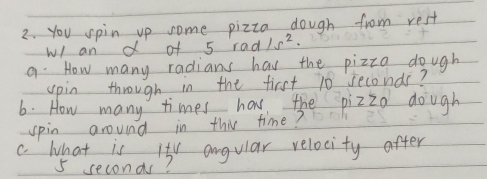 2. You spin up some pizza dough from rest
w/ an α of 5 rad/s².
a. How many radians has the pizza dough
spin through in the first 10 seconds?
b. How many times has the pizza dough
spin around in this time?
c. What is its angular velocity after
5 seconds?